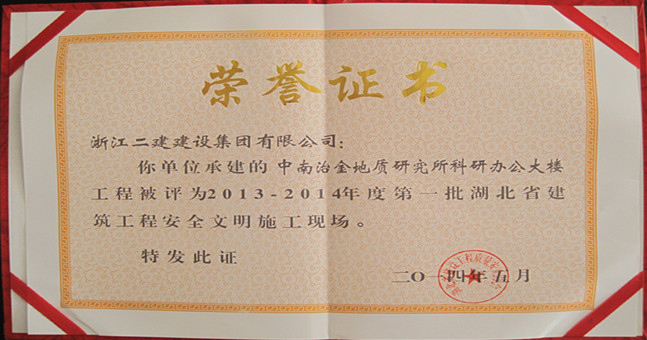 荣誉证书
浙江二建建设集团有限公司：
你单位承建的 中南冶金地质研究所科研办公大楼
工程被评为2013-2014年度第一批湖北省建
筑工程安全文明施工现场。
特发此证
二〇一四年五月